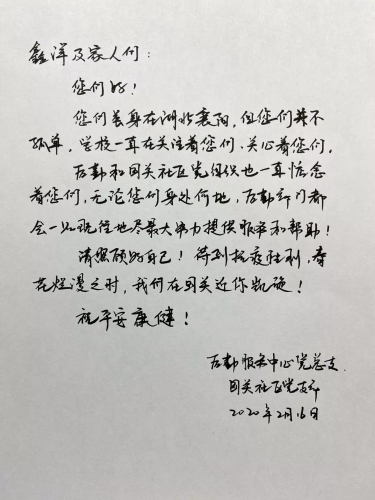 鑫洋及家人们：
您们好！
您们虽身在湖北襄阳，但您们并不
孤单，学校一直在关注着您们、关心着您们，
后勤和回关社区党组织也一直惦念
着您们，无论您们身处何地，后勤部门都
会一如既往地尽最大努力提供服务和帮助！
请照顾好自己！待到抗疫胜利，春
花烂漫之时，我们在回关迎你凯旋！
祝平安康健！
后勤服务中心党总支
回关社区党支部
2020年2月16日